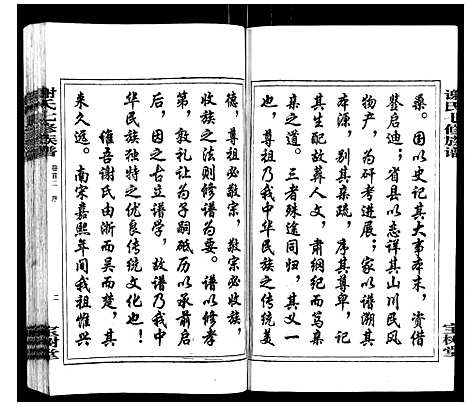 谢氏七修族谱
宝树堂
桑。国以史记其大事本末,资借
鉴启迪;省县以志详其山川民风
物产,为研考进展;家以谱溯其
本源,别其亲疏,序其尊卑,记
其生配故葬人文,肃纲纪而笃亲
亲之道。三者殊途同归,其义一
也,尊祖乃我中华民族之传统美
德,尊祖必敬宗,敬宗必收族,
收族之法则修谱为要。谱以修孝
第,敦礼让为子嗣砥历以承前启
后,因之古立谱学,故谱乃我中
华民族独特之优良传统文化也!
维吾谢氏由浙而吴而楚,其
来久远。南宋嘉熙年间我祖惟兴
谢氏七修族谱
卷首二 序
二
宝树堂